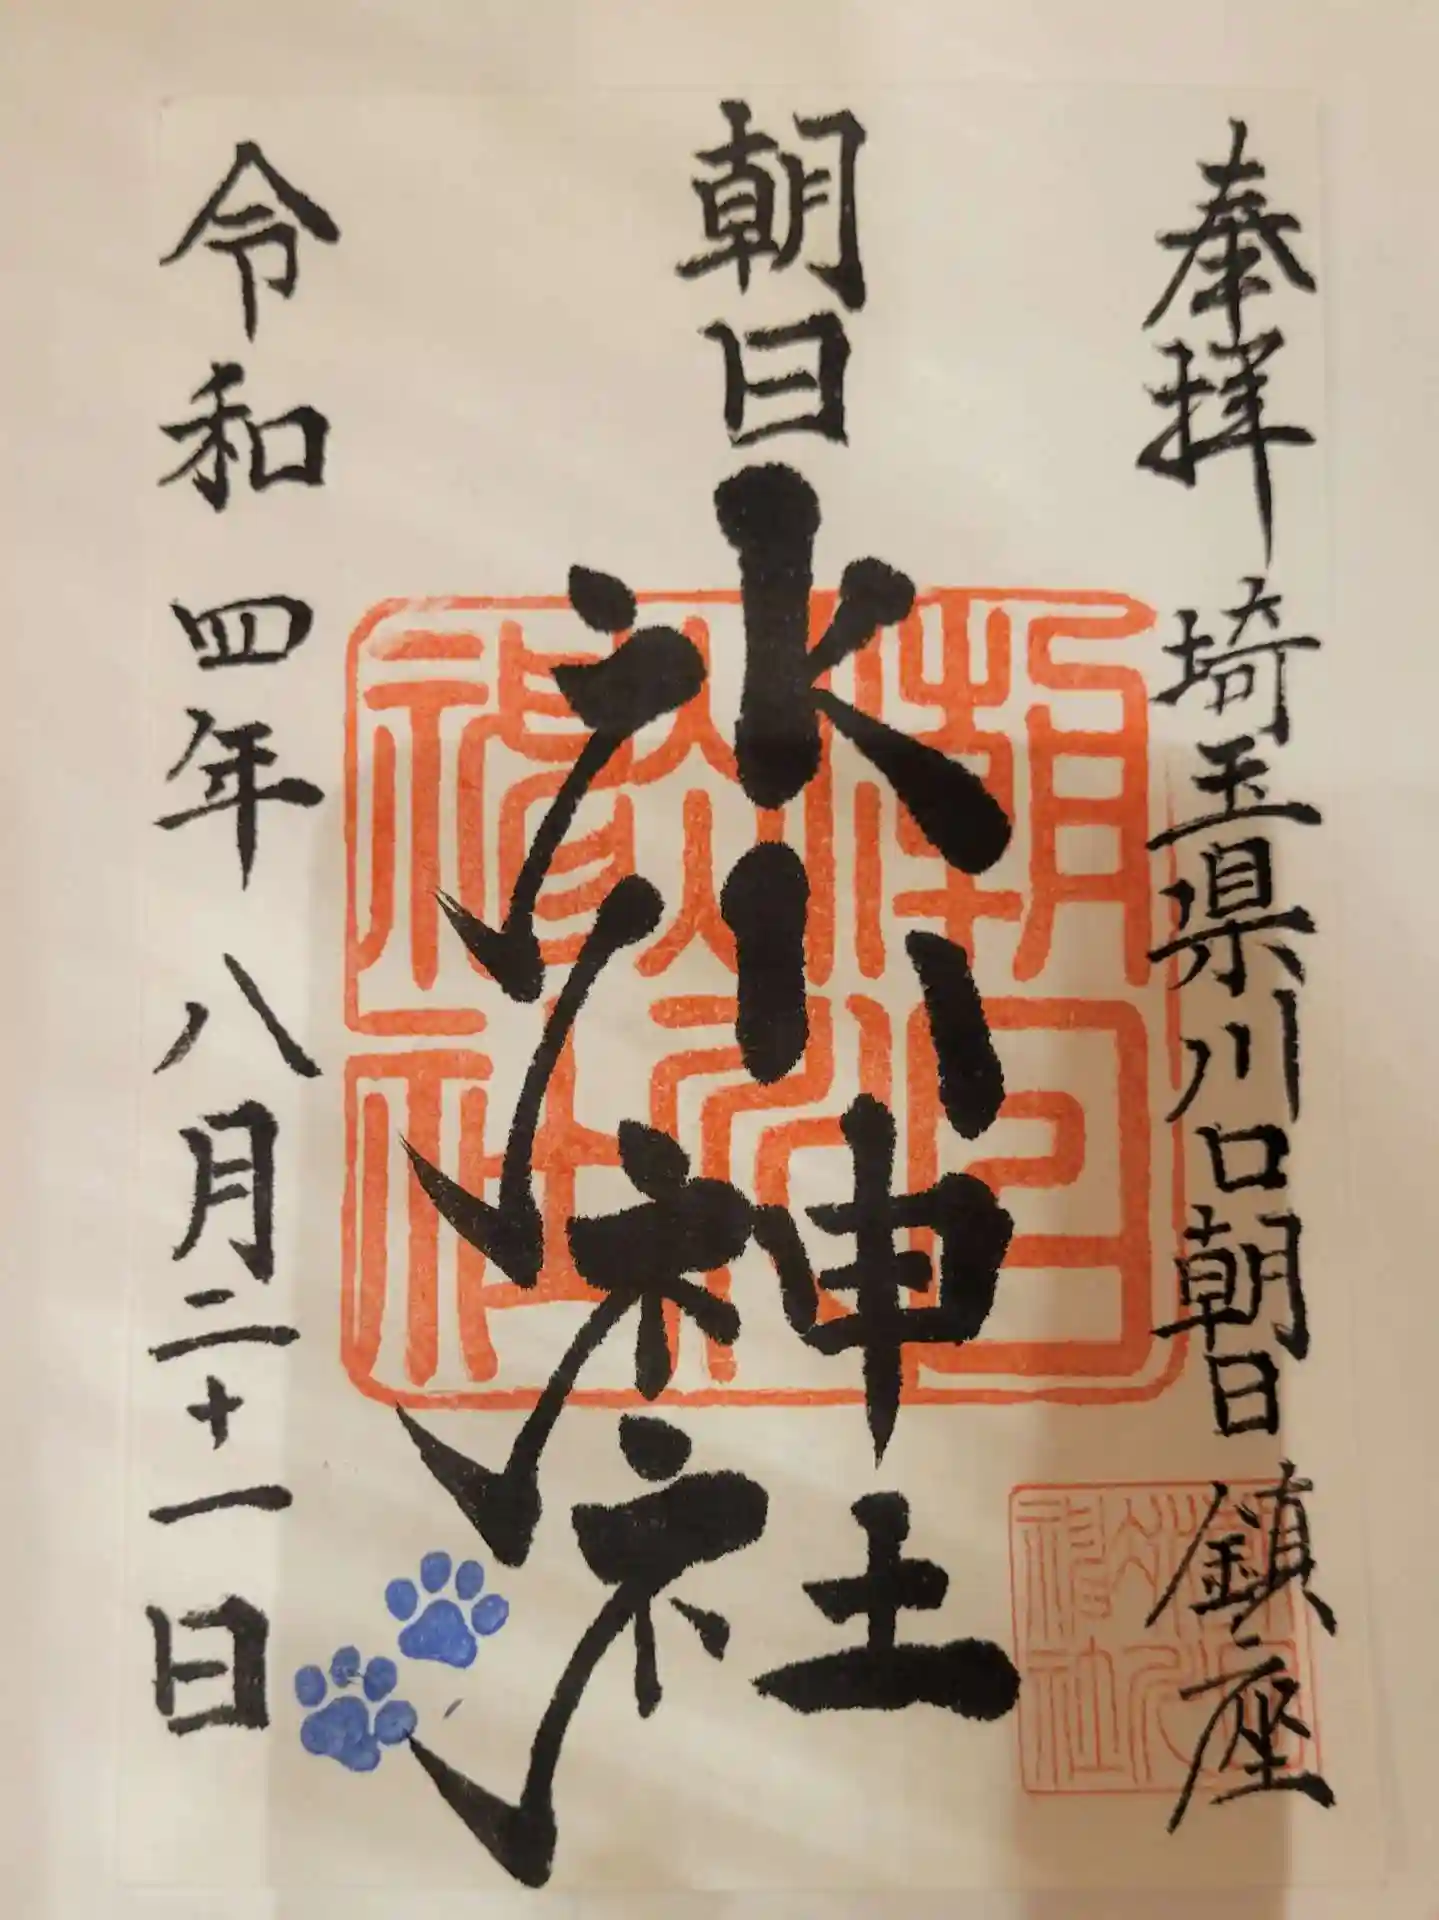 奉拝 埼玉県川口朝日 鎮座
朝日氷川神社
令和四年八月二十一日
朝日氷川神社
朝日氷川神社